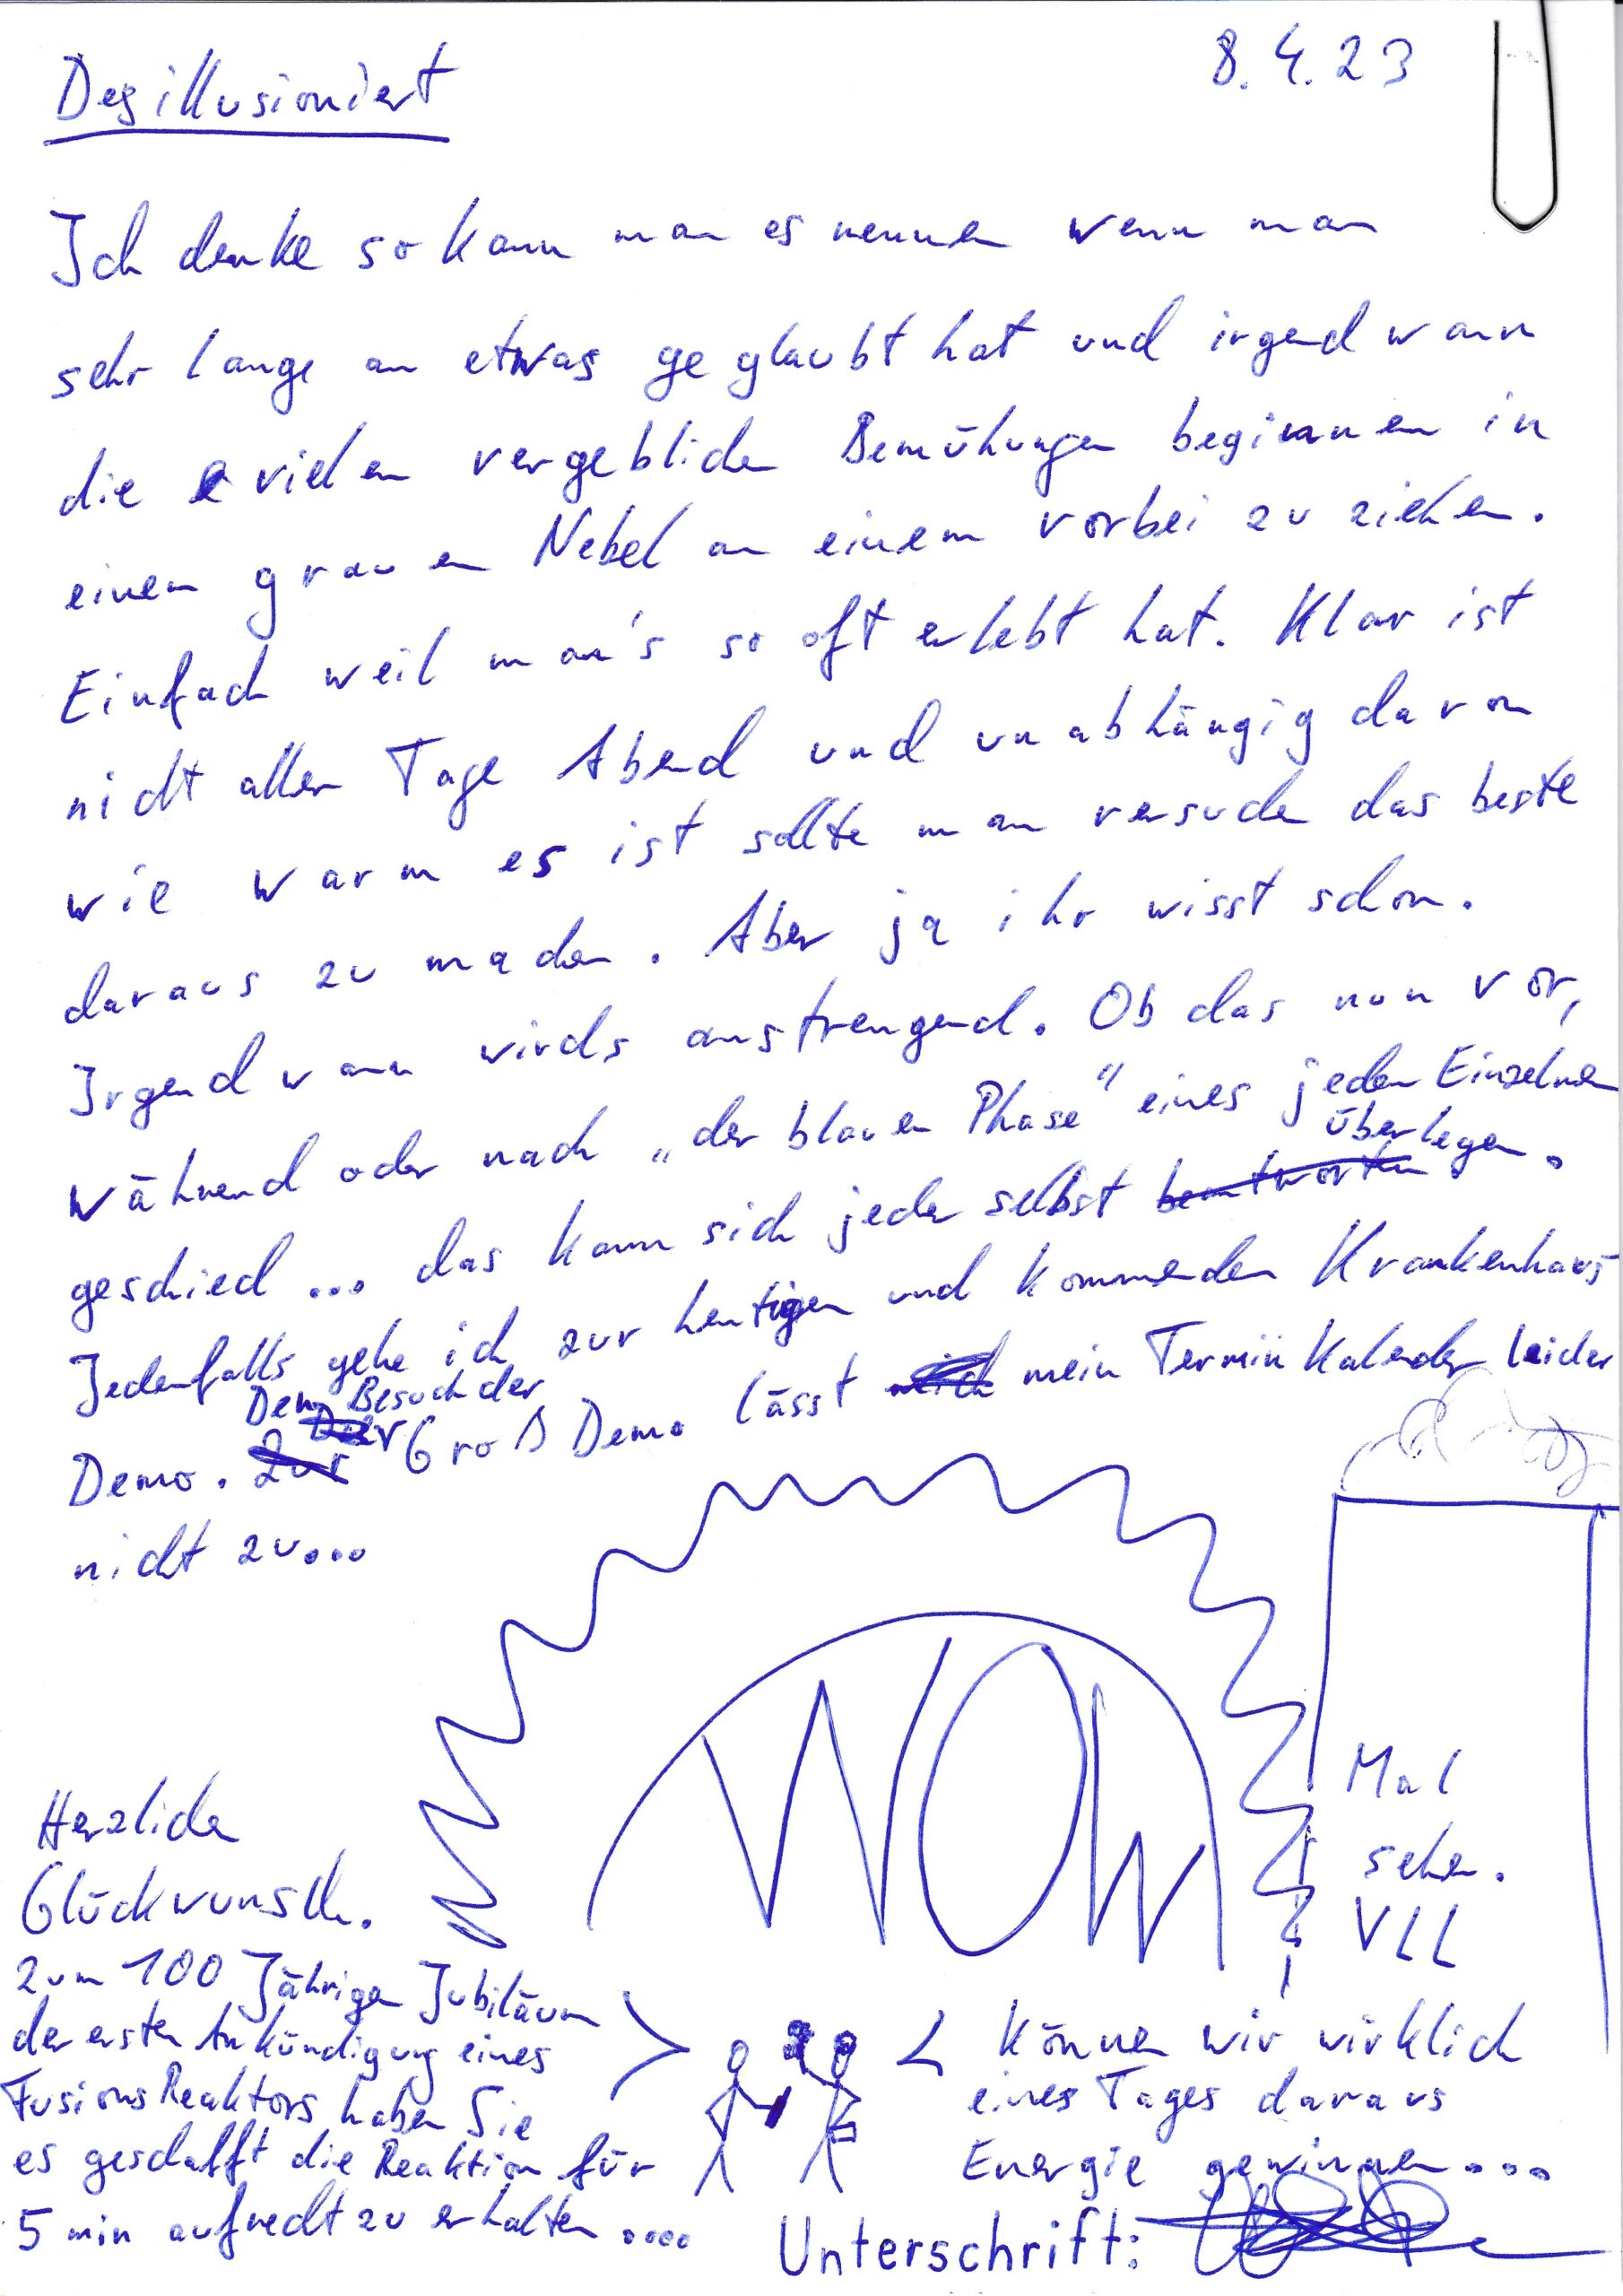 8.4.23
Desillusioniert
Ich denke so kann man es nennen wenn man
sehr lange an etwas geglaubt hat und irgendwann
die vielen vergeblichen Bemühungen beginnen in
einem grauen Nebel an einem vorbei zu ziehen.
Einfach weil man's so oft erlebt hat. Klar ist
nicht aller Tage Abend und unabhängig davon
wie warm es ist sollte man versuchen das beste
daraus zu machen. Aber ja ihr wisst schon.
Irgendwann wirds anstrengend. Ob das nun vor,
während oder nach „der blauen Phase" eines jeden Einzelnen
geschied ... das kann sich jeder selbst beantworten überlegen.
Jedenfalls gehe ich zur heutigen und kommenden Krankenhaus
Demo. Zur Der Dem Besuch der Groß Demo lässt mich mein Termin Kalender leider
nicht zu...
WOW
Mal
sehen.
VLL
Herzlichen
Glückwunsch.
zum 100 Jährigen Jubiläum
der ersten Ankündigung eines
Fusions Reaktors haben Sie
es geschafft die Reaktion für
5 min aufrecht zu erhalten ....
können wir wirklich
eines Tages daraus
Energie gewinnen....
Unterschrift: